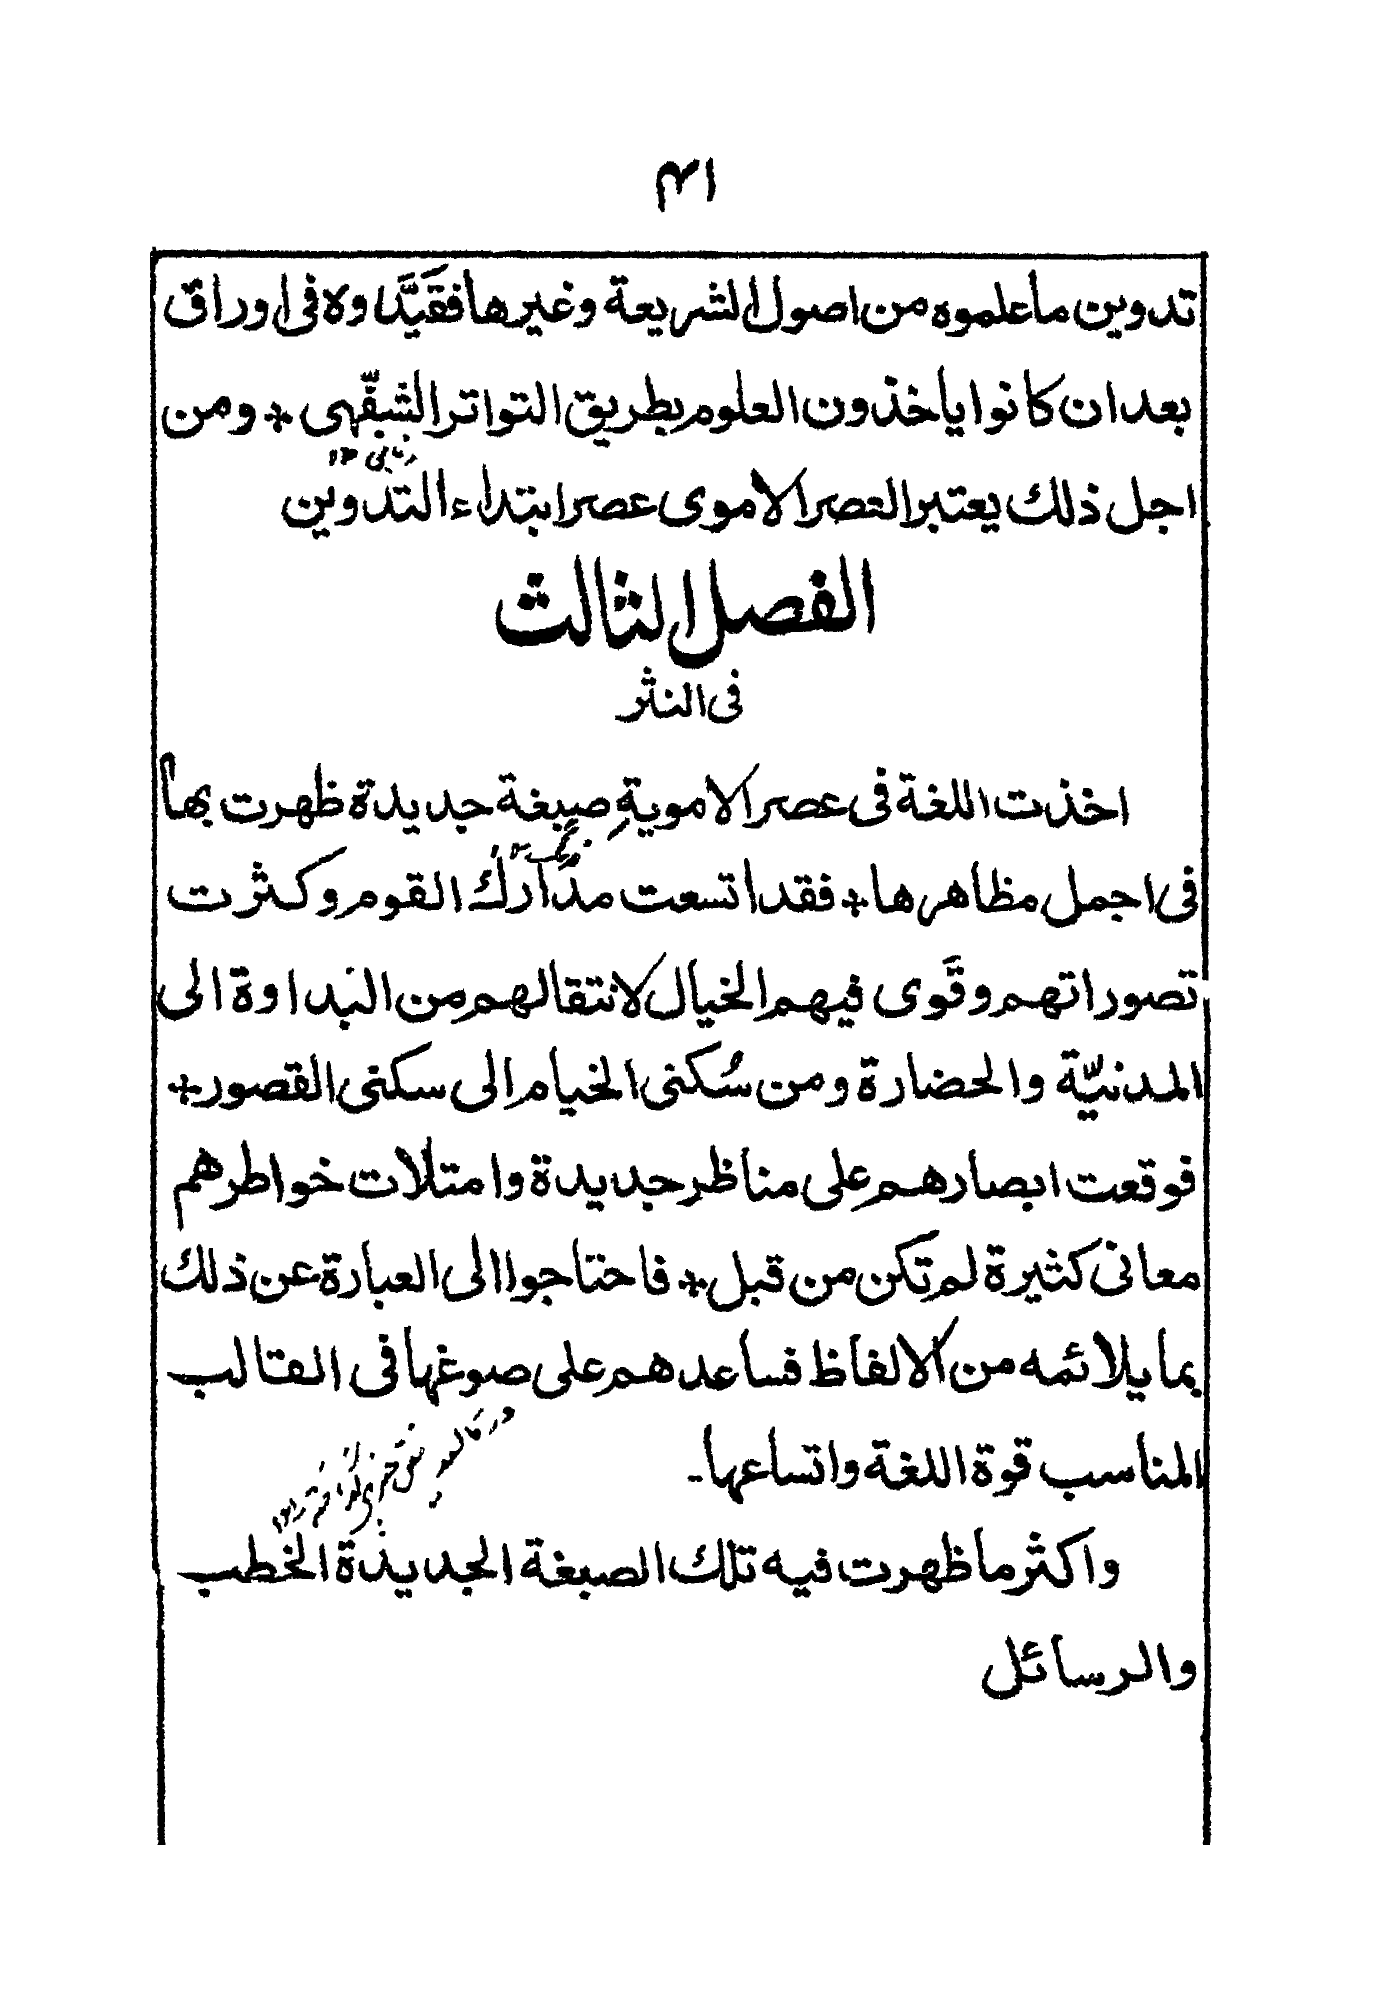 ١٣١
تدوين ما علموه من اصول الشريعة وغيرها فقيَّدا وه فى اوراق
بعد ان كانوا ياخذون العلوم بطريق التواتر الشّفهى * ومن
اجل ذلك يعتبر العصر الاموى عصر ابتداء التدوين
الفصل الثالث
فى النثر
اخذت اللغة فى عصر الاموية صبغة جديدة ظهرت بها
فى اجمل مظاهرها * فقد اتسعت مدارك القوم وكثرت
تصوراتهم وقَوى فيهم الخيال لانتقالهم من البداوة الى
المدنيّة والحضارة ومن سُكنى الخيام الى سكنى القصور *
فوقعت ابصارهم على مناظر جديدة وامتلات خواطرهم
معانى كثيرة لم تكن من قبل * فاحتاجوا الى العبارة عن ذلك
بما يلائمه من الالفاظ فساعدهم على صوغها فى القالب
المناسب قوة اللغة واتساعها ـ
واكثر ما ظهرت فيه تلك الصبغة الجديدة الخطب
والرسائل